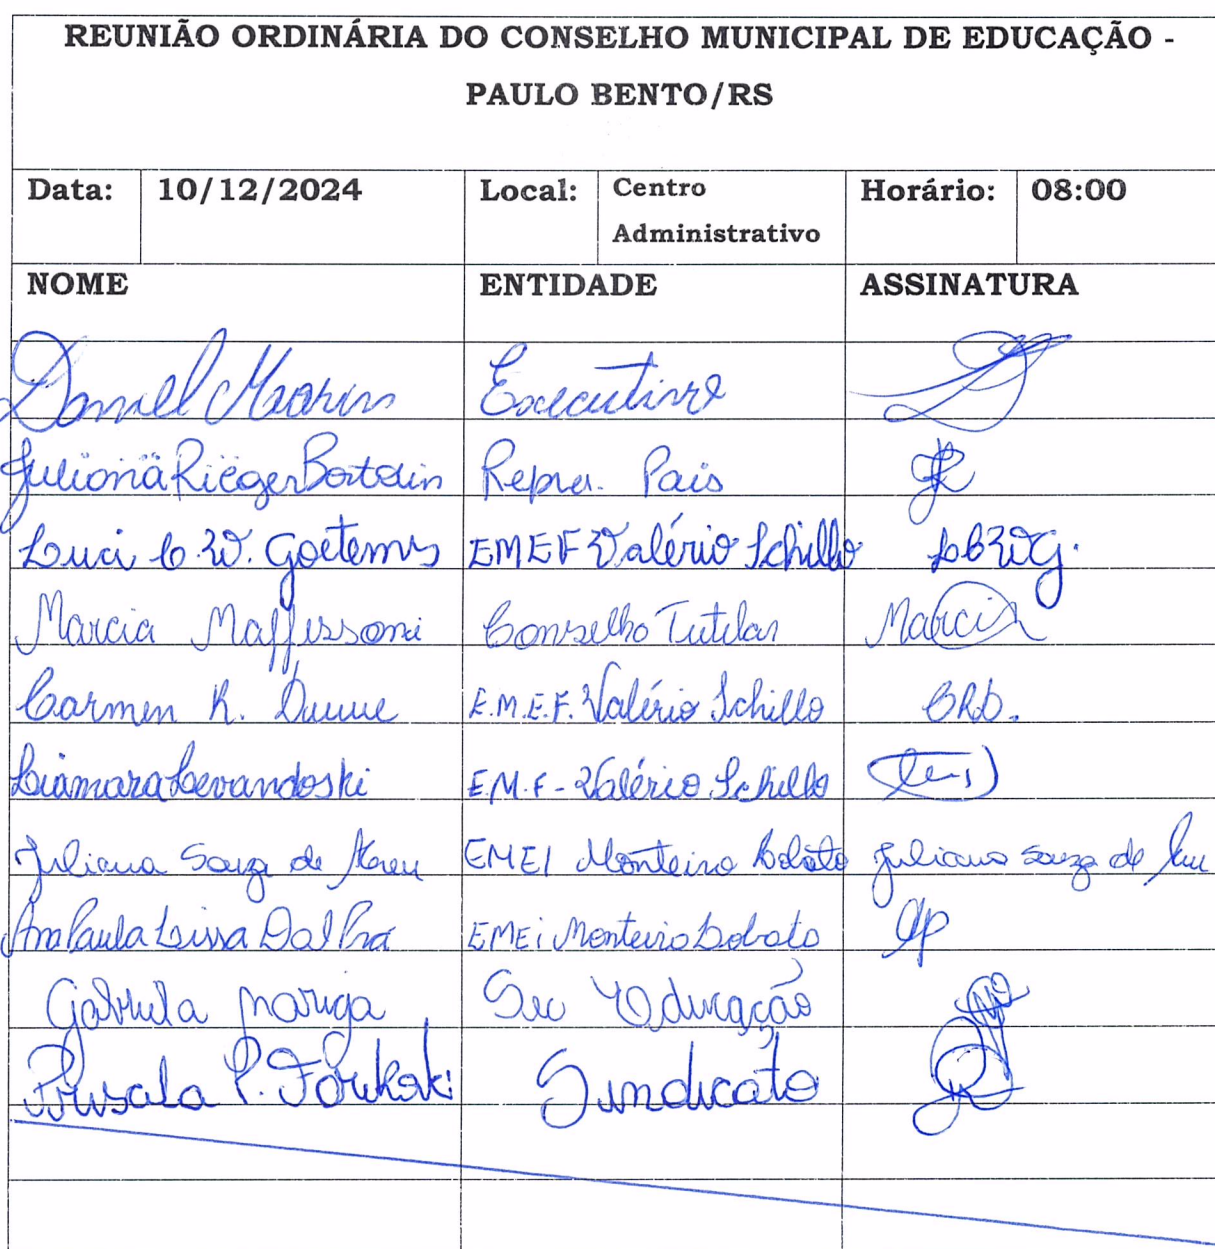 REUNIÃO ORDINÁRIA DO CONSELHO MUNICIPAL DE EDUCAÇÃO -
PAULO BENTO/RS
Data: 10/12/2024 Local: Centro Administrativo Horário: 08:00
NOME ENTIDADE ASSINATURA
Daniel Executivo
Juliana Rieger Bortolin Repre. Pais
Luci C. W. Goetems EMEF Valério Schillo LCWG.
Marcia Maffissoni Conselho Tutelar Marcia
Carmen R. E.M.E.F. Valério Schillo CRD.
Liamara Levandoski E.M.F - Valério Schillo
Juliana Souza de EMEI Monteiro Lobato Juliana Souza de
Ana Paula Lissa Dal Prá EMEi Monteiro Lobato AP
Gabriela Mariga Sec Educação
P. Sindicato